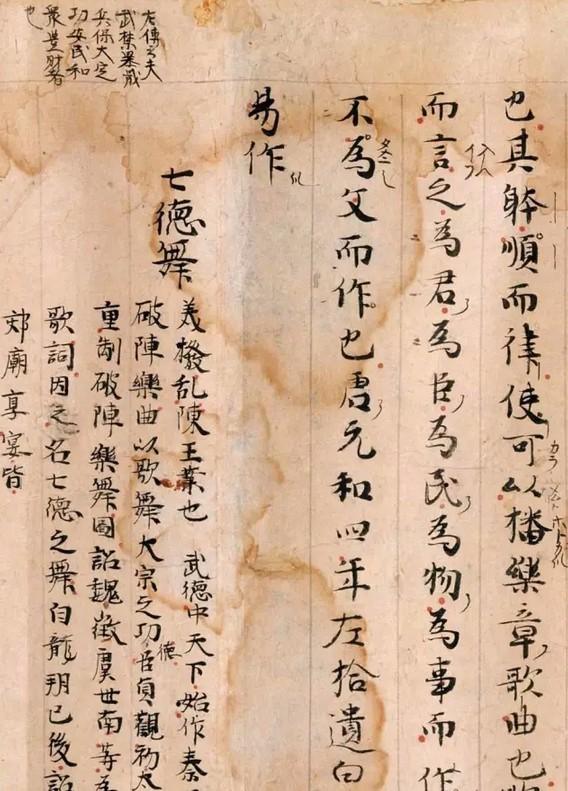 也其躰順而律使可以播樂章歌曲也
而言之為君為臣為民為物為事而作
不為文而作也唐元和四年左拾遺白
易作
七德舞
美撥乱陳王業也 武德中天下始作秦
破陣樂曲以歌舞大宗之功臣貞觀初太
德
重制破陣樂舞圖詔魏徵虞世南等為
歌詞因之名七德之舞自龍朔已後詔
郊廟享宴皆
左傳云夫
武禁暴戢
兵保大定
功安民和
衆豊財者
也